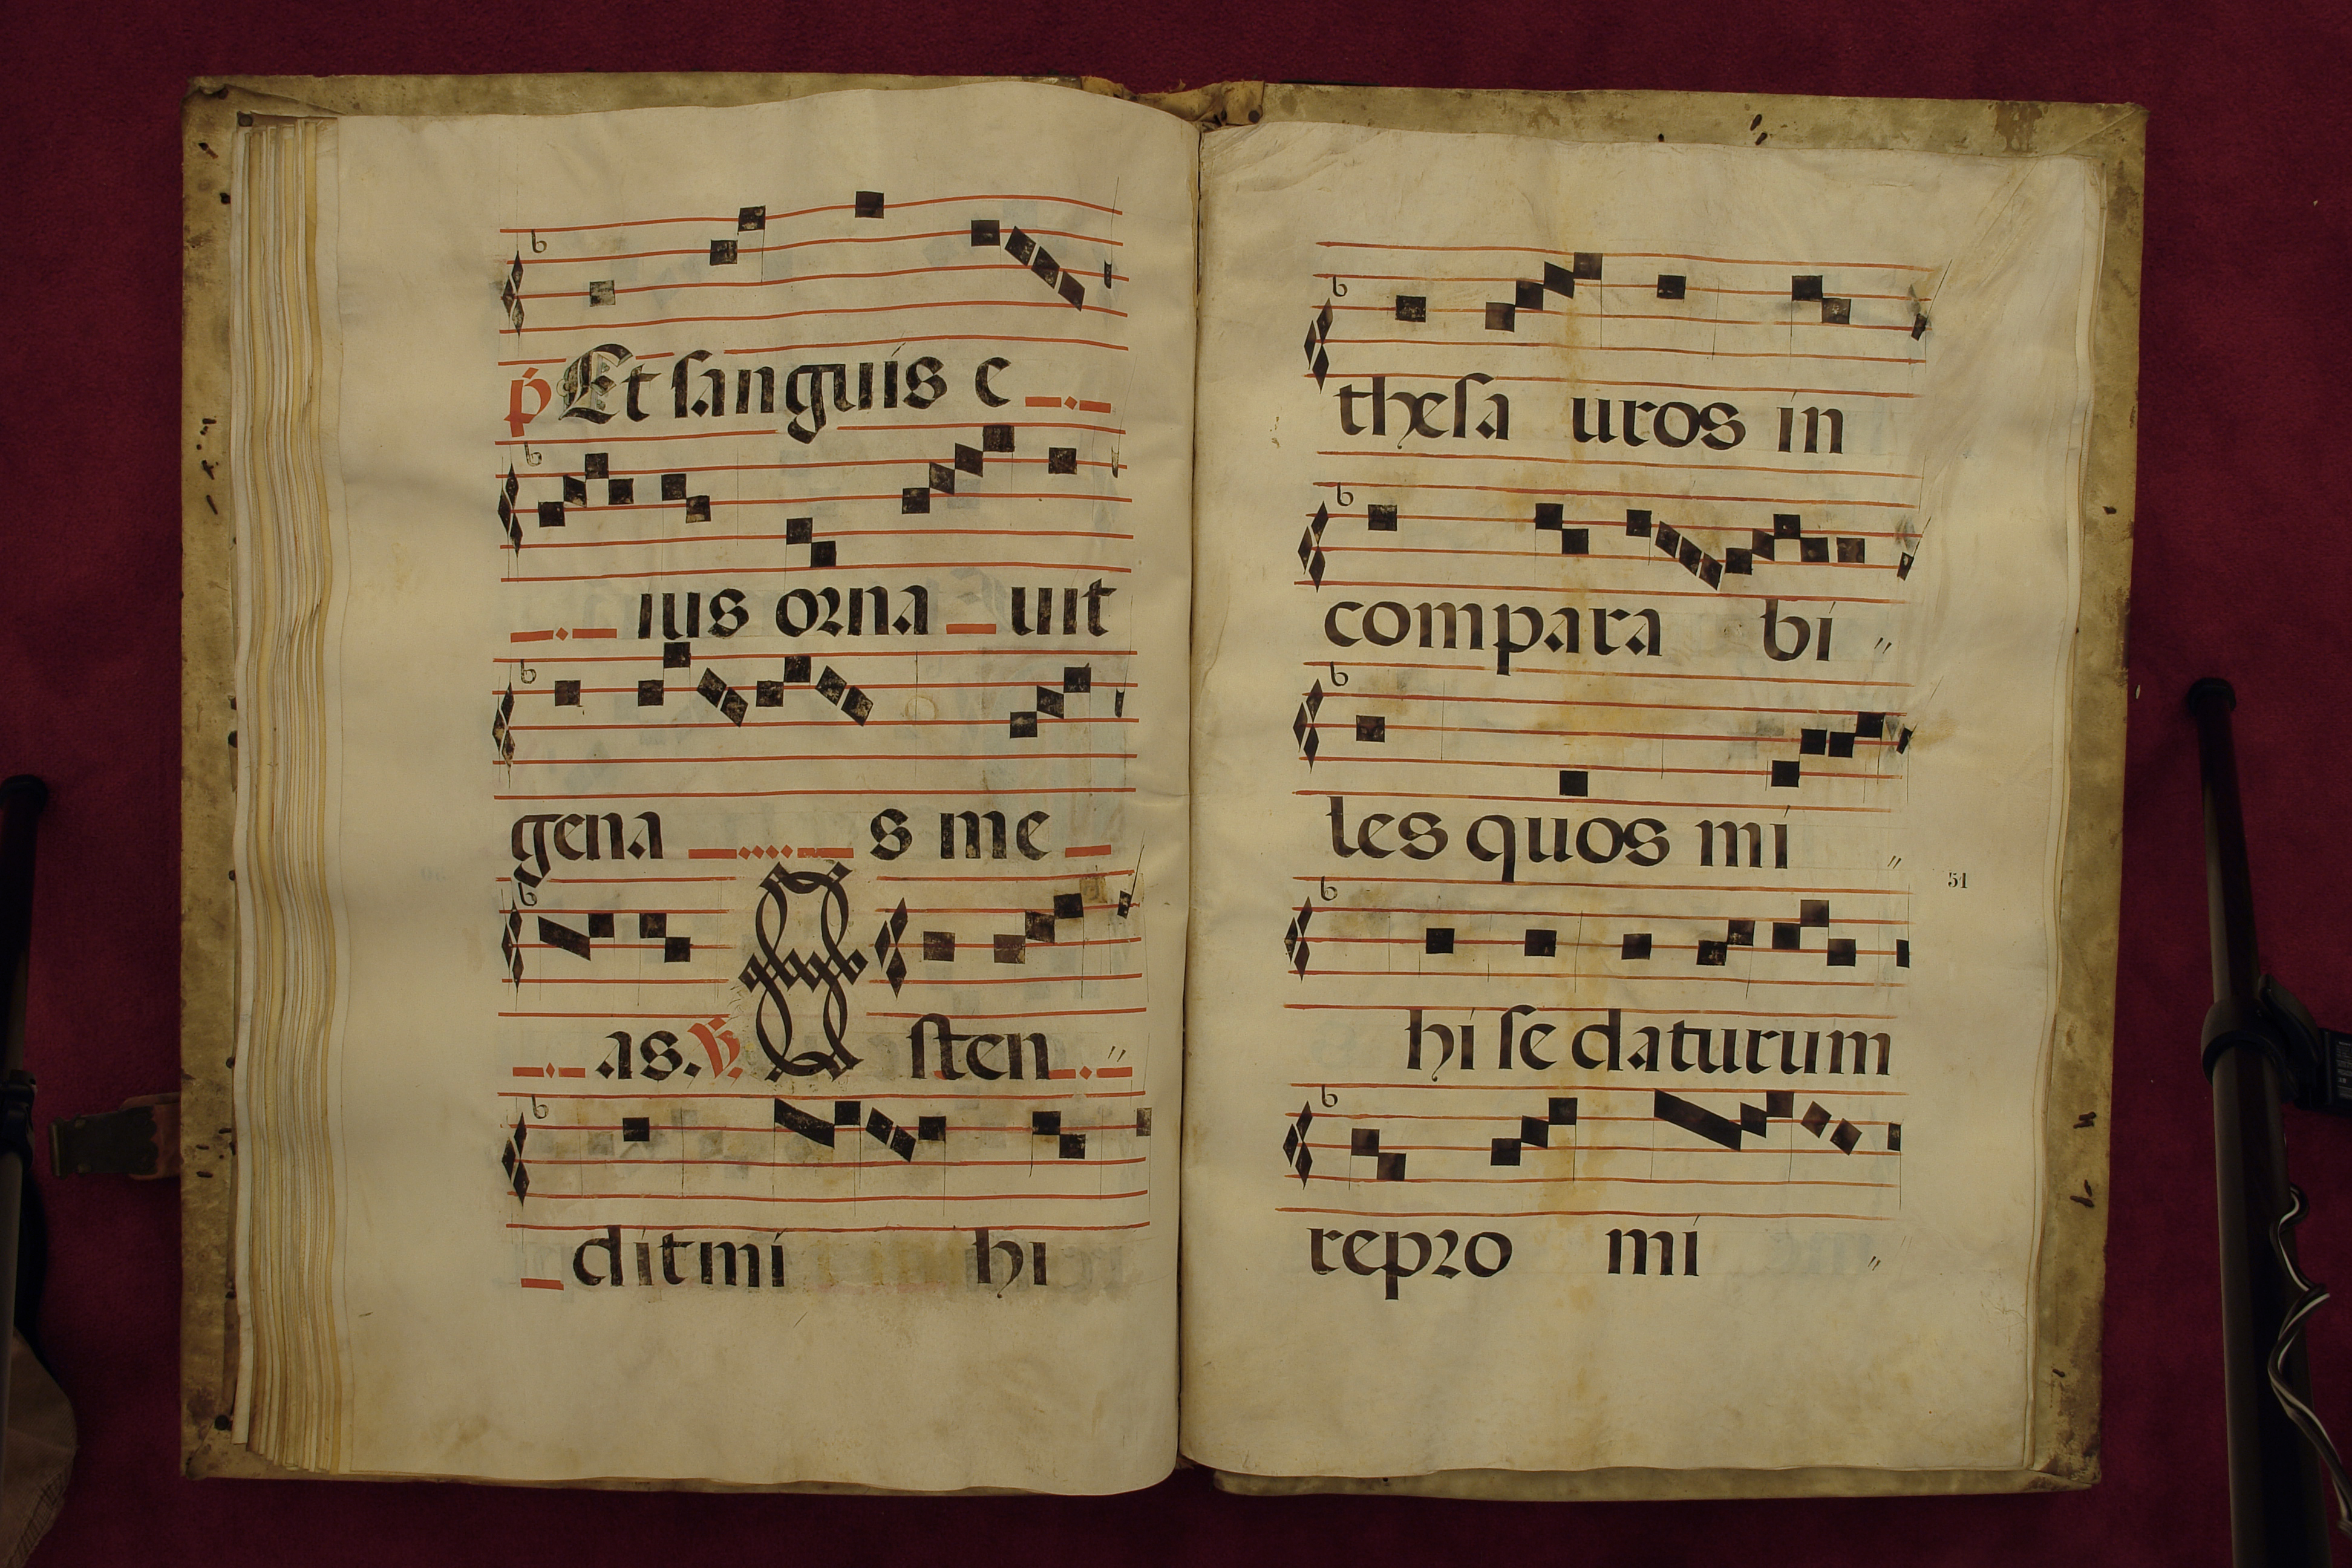 p Et sanguis e
ius orna uit
gena s me
as. V. O sten
dit mi hi
thesa uros in
compara bi
les quos mi
51
hi se daturum
repro mi